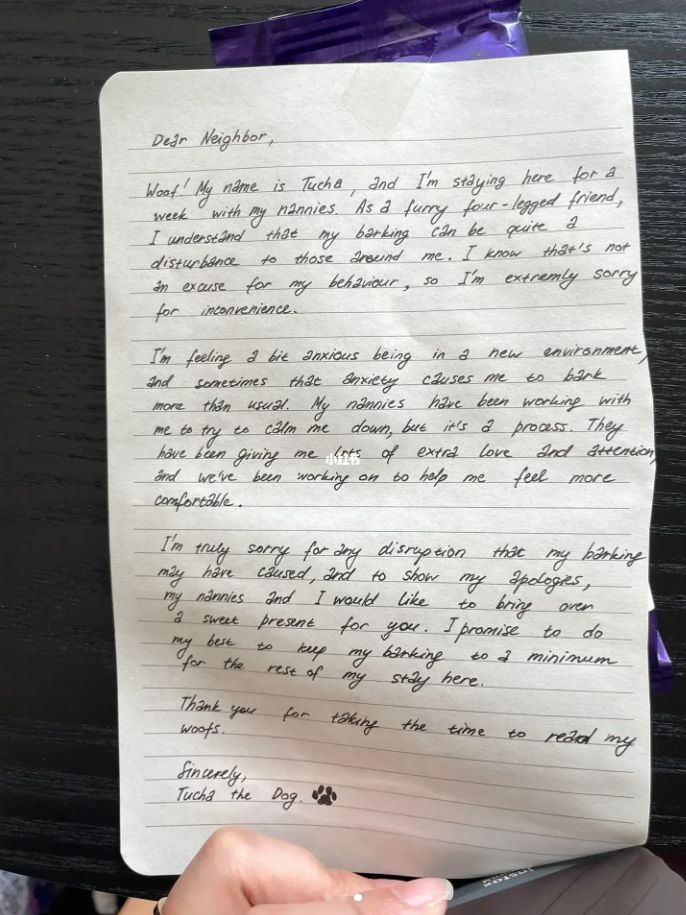 Dear Neighbor,
Woof! My name is Tucha, and I'm staying here for a
week with my nannies. As a furry four-legged friend,
I understand that my barking can be quite a
disturbance to those around me. I know that's not
an excuse for my behaviour, so I'm extremly sorry
for inconvenience.
I'm feeling a bit anxious being in a new environment,
and sometimes that anxiety causes me to bark
more than usual. My nannies have been working with
me to try to calm me down, but it's a process. They
have been giving me lots of extra love and attention,
and we've been working on to help me feel more
comfortable.
小红书
I'm truly sorry for any disruption that my barking
may have caused, and to show my apologies,
my nannies and I would like to bring over
a sweet present for you. I promise to do
my best to keep my barking to a minimum
for the rest of my stay here.
Thank you for taking the time to read my
woofs.
Sincerely,
Tucha the Dog.
instax